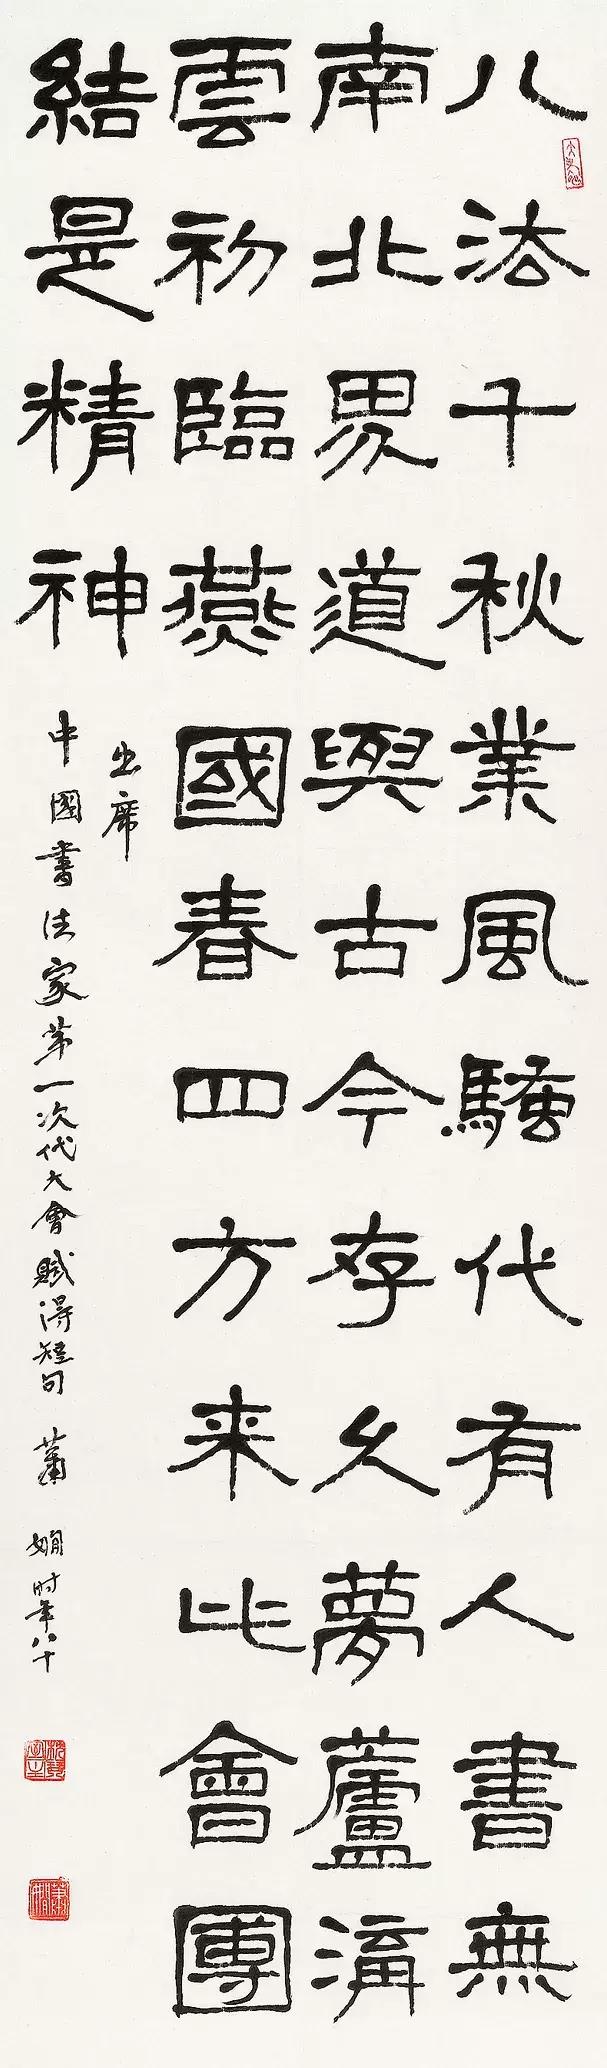 八法千秋業風騷代有人書無
南北界道與古今存久夢蘆溝
雲初臨燕國春四方来比會團
結是精神
出席
中國書法家第一次代大會賦得短句 蕭嫻時年八十
蕭嫻